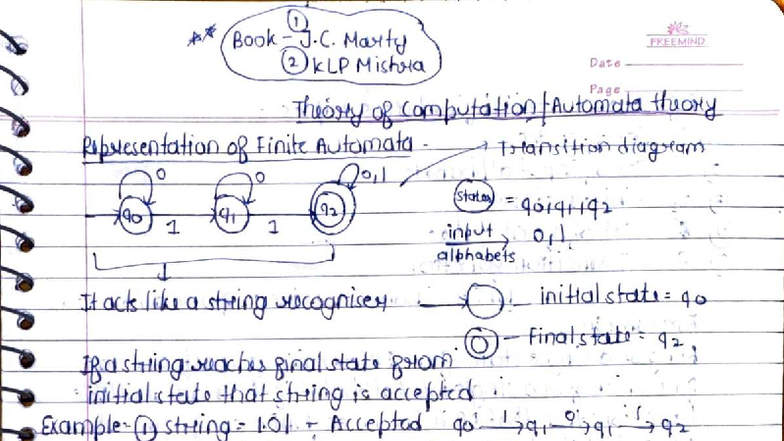 ** Book - ① J.C. Marty
② KLP Mishra
FREEMIND
Date
Page
Theory of Computation / Automata theory
Representation of Finite Automata - Transition diagram
0 0 0,1
q0 1 q1 1 q2
States = q0, q1, q2
input alphabets 0,1
It acts like a string recogniser
initial state = q0
- Final state = q2
If a string reaches final state from
initial state that string is accepted.
Example - ① string = 101 - Accepted q0 -1→ q1 -0→ q1 -1→ q2